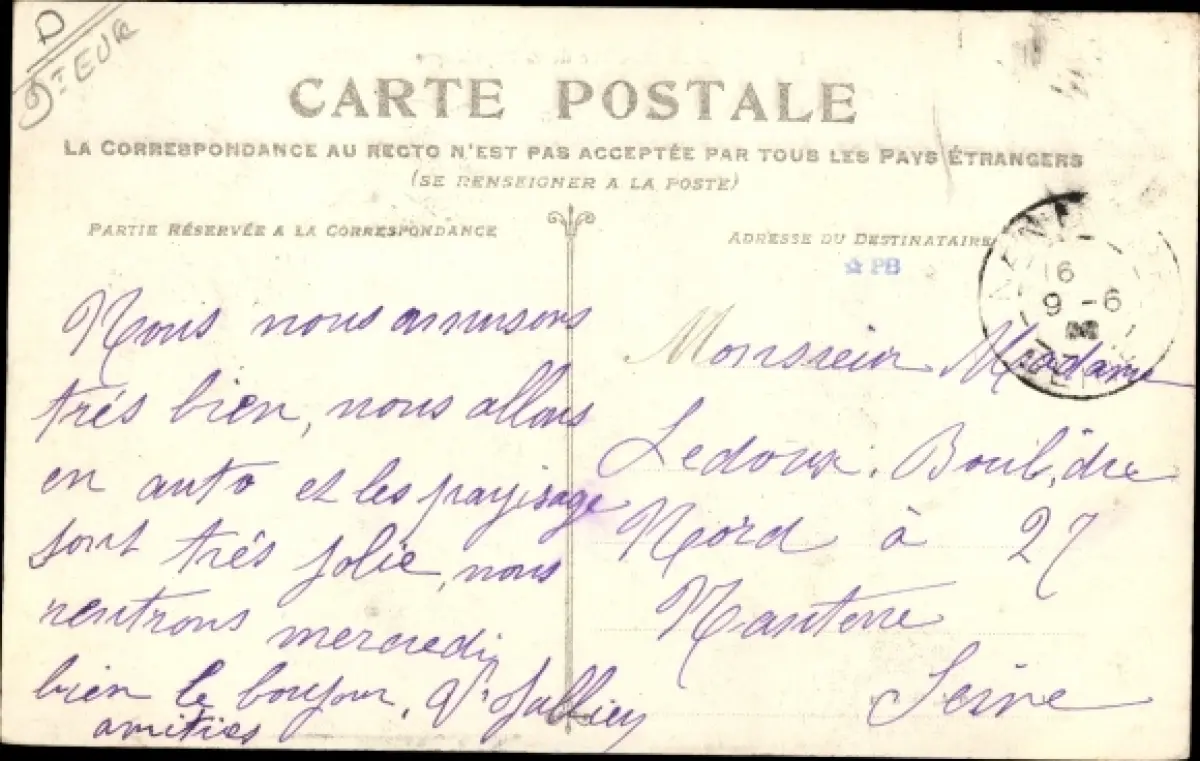 D
9T EUR
CARTE POSTALE
LA CORRESPONDANCE AU RECTO N'EST PAS ACCEPTÉE PAR TOUS LES PAYS ÉTRANGERS
(SE RENSEIGNER A LA POSTE)
PARTIE RÉSERVÉE A LA CORRESPONDANCE
Nous nous amusons
très bien, nous allons
en auto et les payisage
sont très jolie, nous
rentrons mercredi
bien le bonjour,
amitiés
ADRESSE DU DESTINATAIRE
PB
6
9 - 6
Monsieur Madame
Ledoux. Boul, du
Nord à 27
Nanterre
Seine